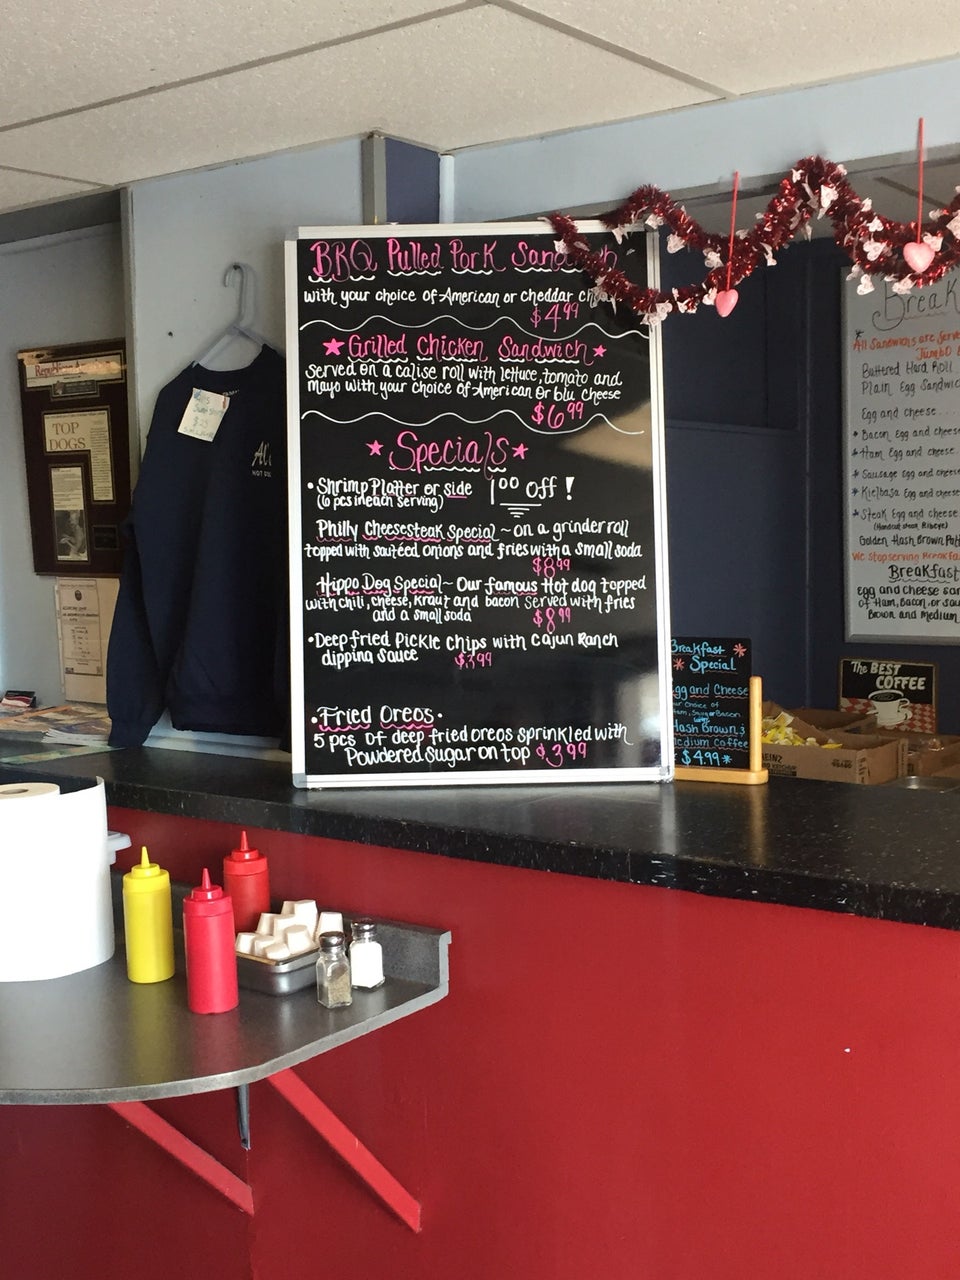 BBQ Pulled Pork Sandwich
with your choice of American or cheddar
$4.99
Grilled Chicken Sandwich
served on a calise roll with lettuce, tomato and
mayo with your choice of American or blu cheese
$6.99
Specials
• Shrimp Platter or side 1.00 off!
(6 pcs in each serving)
Philly Cheesesteak Special ~ on a grinder roll
topped with sautéed onions and fries with a small soda
$8.99
Hippo Dog Special ~ Our famous Hot dog topped
with chili, cheese, kraut and bacon served with fries
and a small soda $8.99
• Deep fried Pickle chips with cajun Ranch
dipping sauce $3.99
• Fried Oreos •
5 pcs of deep fried oreos sprinkled with
Powdered sugar on top $3.99
TOP
DOGS
Al's
Breakfast
Special
Egg and Cheese
with
Hash Brown &
Medium Coffee
$4.99
The BEST
COFFEE
HEINZ
Break
All Sandwiches are Serve
Jumbo
Buttered Hard Roll
Plain Egg Sandwic
Egg and cheese . . .
* Bacon Egg and cheese
* Ham Egg and cheese
* Sausage Egg and cheese
* Kielbasa Egg and cheese
* Steak Egg and cheese
(Handcut steak Ribeye)
Golden Hash Brown Pat
We stop serving Breakfa
Breakfast
Egg and cheese san
of Ham, Bacon, or sau
Brown and Medium